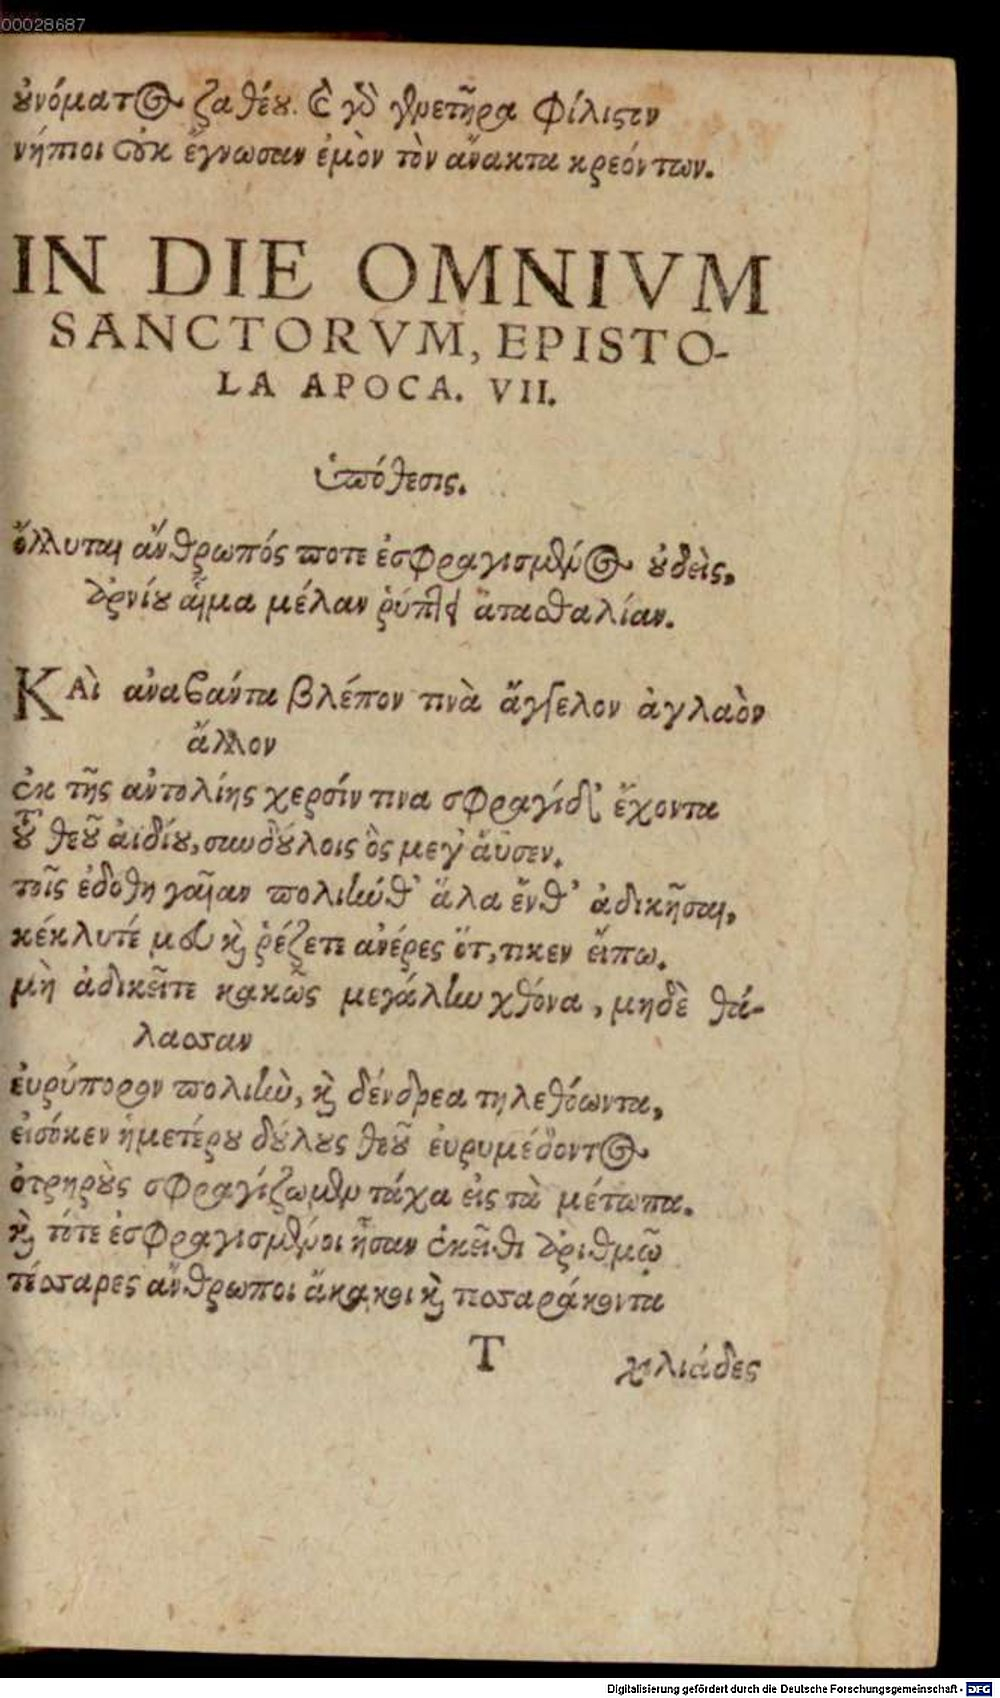 00028687
οὐνόματος ζαθέου. καὶ γὸ γενετῆρα φίλιστον
νήπιοι οὐκ ἔγνωσαν ἐμὸν τὸν ἄνακτα κρεόντων.
IN DIE OMNIVM
SANCTORVM, EPISTO-
LA APOCA. VII.
ὑπόθεσις.
ὄλλυται ἄνθρωπός ποτε ἐσφραγισμένος οὐδεὶς,
ἀρνίου αἷμα μέλαν ῥύπτει ἀτασθαλίαν.
Καὶ ἀναβάντα βλέπον τινὰ ἄγγελον ἀγλαὸν
ἄλλον
ἐκ τῆς ἀντολίης χερσίν τινα σφραγίδ' ἔχοντα
τοῦ θεοῦ ἀϊδίου, συνδούλοις ὃς μέγ' ἄϋσεν.
τοῖς ἐδόθη γαῖαν πολιήνθ' ἅλα ἔνθ' ἀδικῆσαι,
κέκλυτέ μου καὶ ῥέζετε ἀνέρες ὅτ,τικεν εἴπω.
μὴ ἀδικεῖτε κακῶς μεγάλην χθόνα, μηδὲ θά-
λασσαν
εὐρύπορον πολιὴν, καὶ δένδρεα τηλεθόωντα,
εἰσόκεν ἡμετέρου δούλους θεοῦ εὐρυμέδοντος
ὀτρηροὺς σφραγίζωμεν τάχα εἰς τὰ μέτωπα.
καὶ τότε ἐσφραγισμένοι ἦσαν ἐκεῖθι ἀριθμῷ
τέσσαρες ἄνθρωποι ἄκακοι καὶ τεσσαράκοντα
T χιλιάδες
Digitalisierung gefördert durch die Deutsche Forschungsgemeinschaft - DFG